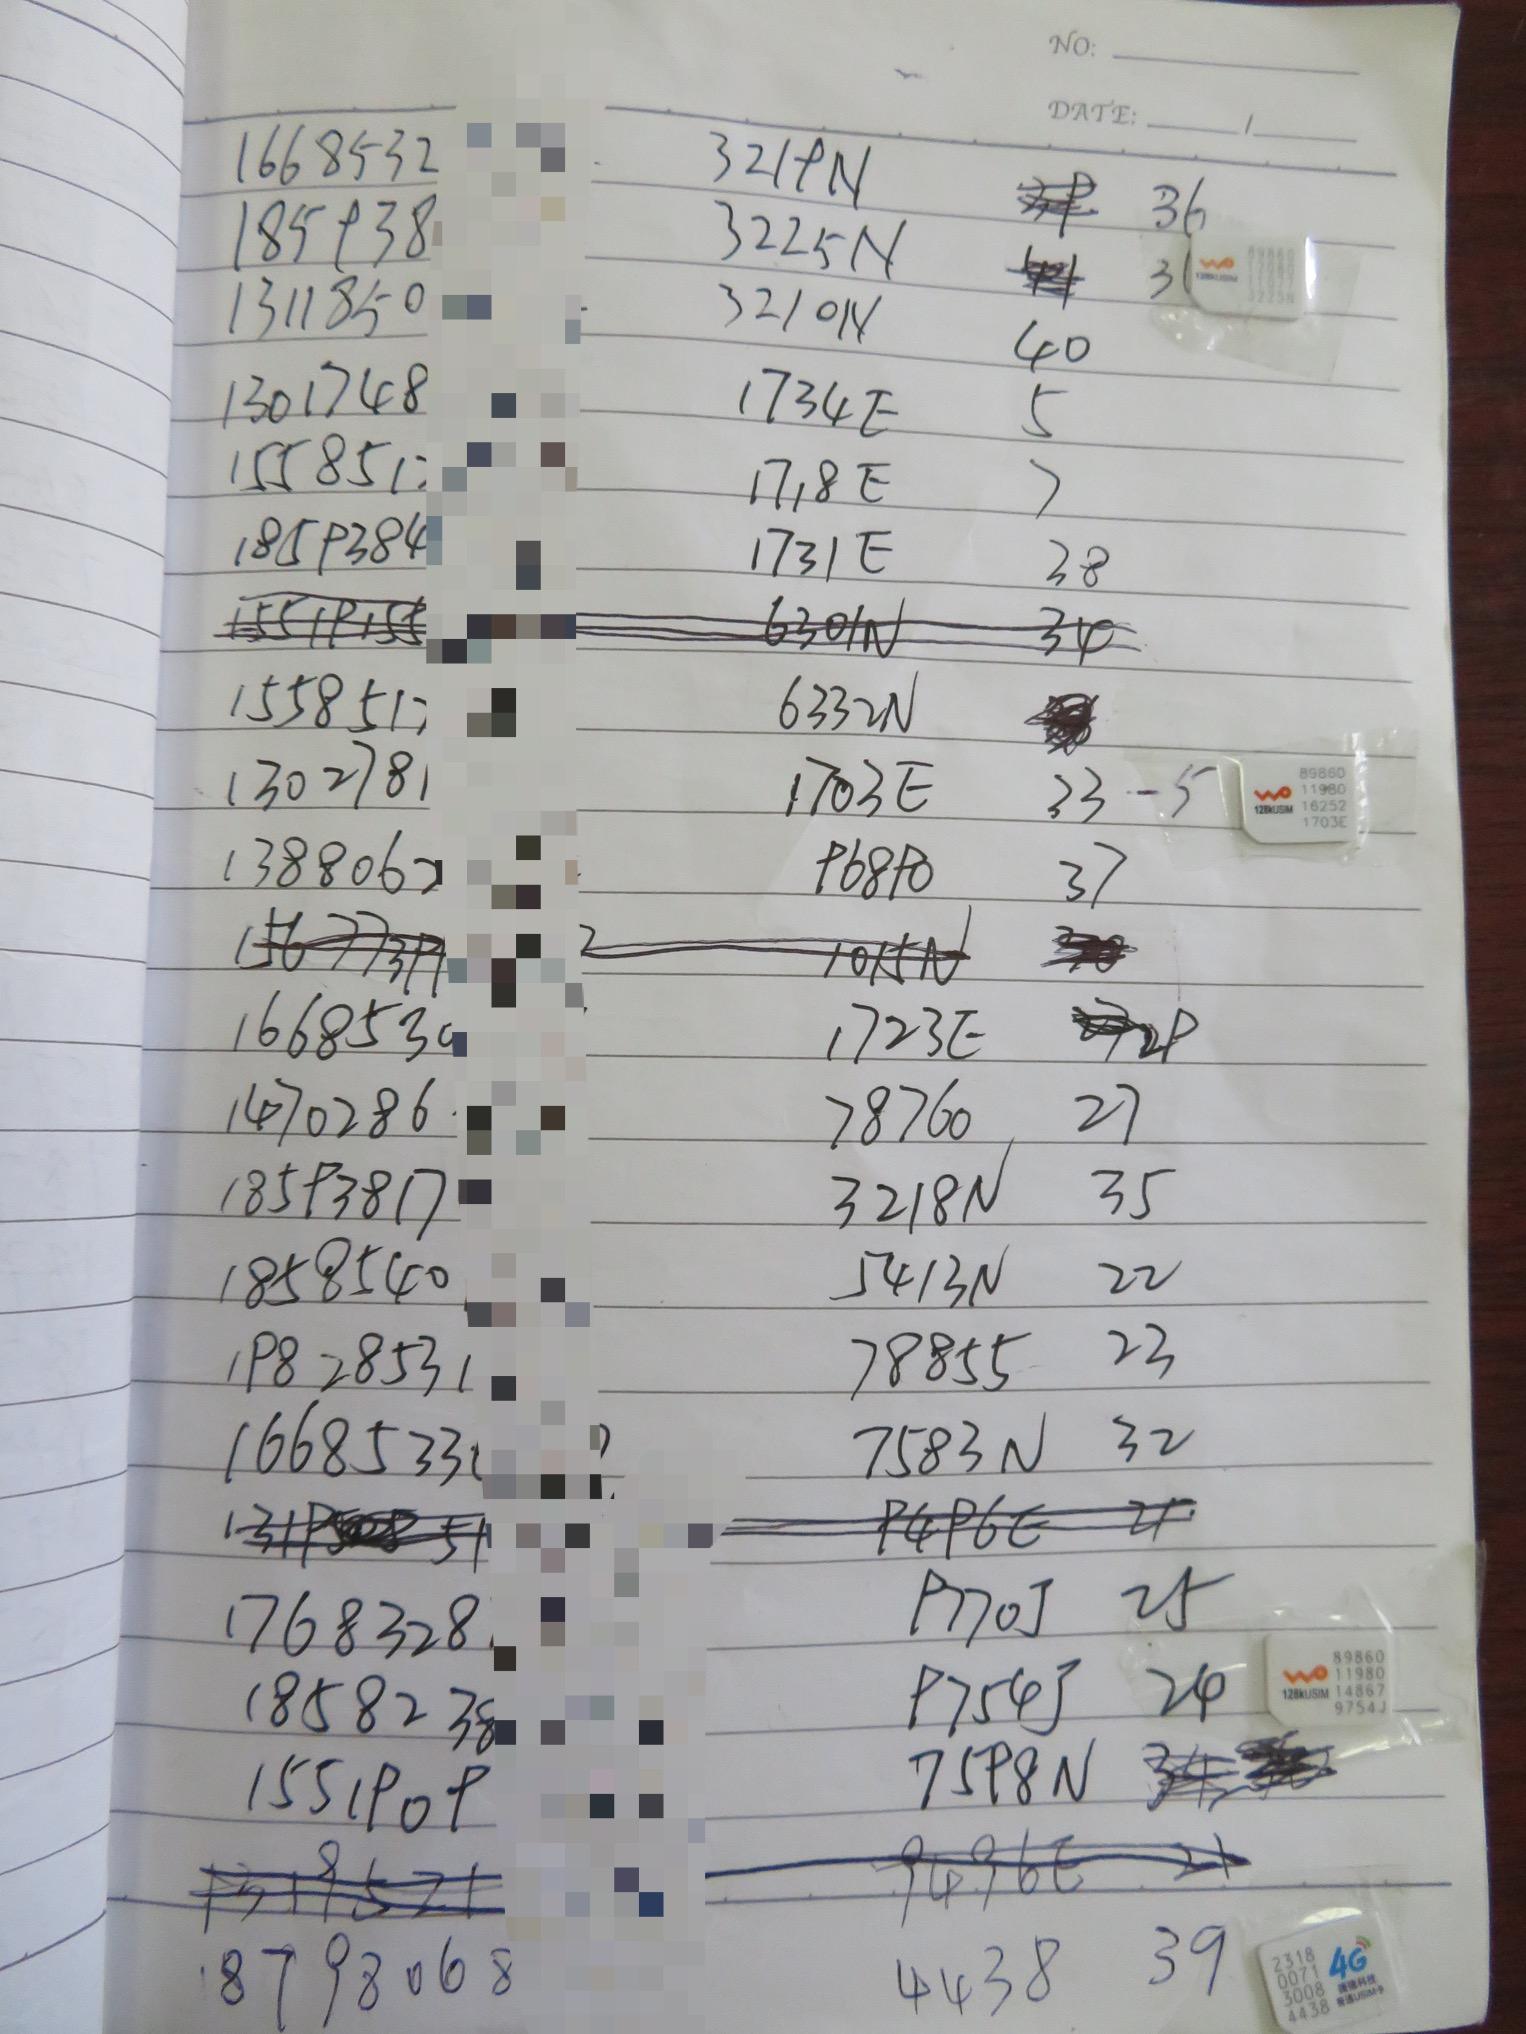 NO:
DATE: /
1668532 3219N 36
185938 3225N 3
1311850 3210N 40
1301748 1734E 5
155851 1718E 7
1859384 1731E 38
6301N 34
155851 6332N
1302781 1703E 33 -5
138806 96890 37
1015N
166853 1723E 29
1470286 78760 27
18593817 3218N 35
1858540 5413N 22
19828531 78855 23
1668533 7583N 32
9496E 21
1768328 9770J 25
1858238 9754J 24
1551909 7598N
9496E 21
18793068 4438 39
128kUSIM
3225N
128kUSIM
89860
11980
16252
1703E
128kUSIM
89860
11980
14867
9754J
2318
0071
3008
4438
4G